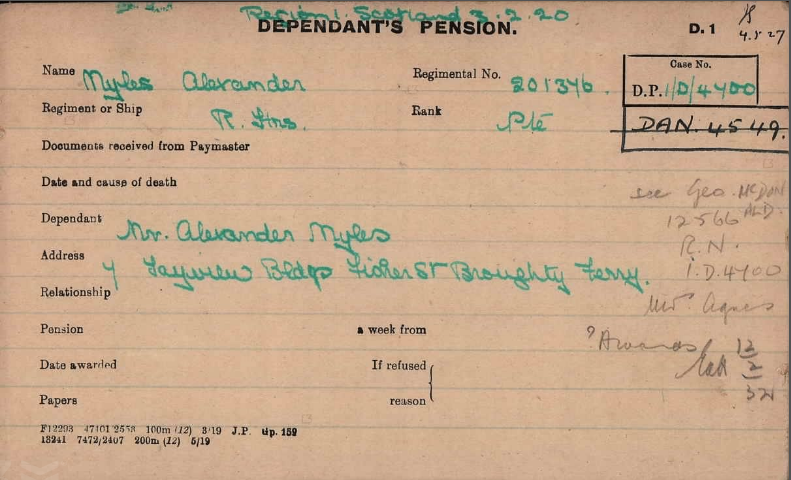 Region 1. Scotland 3.2.20
DEPENDANT'S PENSION.
D. 1
4.5.27
Name Myles Alexander
Regimental No. 201346.
Case No.
D.P. 1/D/4400
Regiment or Ship R. Hrs.
Rank Pte
DAN. 4549.
Documents received from Paymaster
Date and cause of death
see Geo. McDONALD.
12566
Dependant Mr. Alexander Myles
R.N.
Address 4 Tayview Bldgs Fisher St Broughty Ferry.
1.D.4400
Relationship
Mrs. Agnes
Pension a week from
? Awards 12
2
32
Date awarded If refused
Papers reason
F12293 47101 2553 100m (12) 3/19 J.P. Gp. 152
13241 7472/2407 200m (12) 5/19